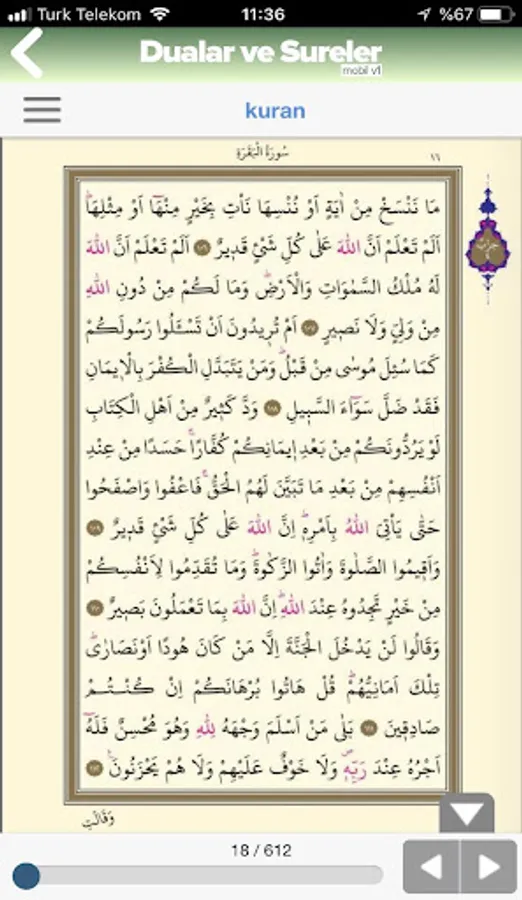 Turk Telekom 11:36 %67
Dualar ve Sureler
mobil v1
kuran
سُورَةُ الْبَقَرَةِ ١٦
مَا نَنْسَخْ مِنْ اٰيَةٍ اَوْ نُنْسِهَا نَأْتِ بِخَيْرٍ مِنْهَٓا اَوْ مِثْلِهَاۜ
اَلَمْ تَعْلَمْ اَنَّ اللّٰهَ عَلٰى كُلِّ شَيْءٍ قَد۪يرٌ ١٠٦ اَلَمْ تَعْلَمْ اَنَّ اللّٰهَ
لَهُ مُلْكُ السَّمٰوَاتِ وَالْاَرْضِۜ وَمَا لَكُمْ مِنْ دُونِ اللّٰهِ
مِنْ وَلِيٍّ وَلَا نَص۪يرٍ ١٠٧ اَمْ تُر۪يدُونَ اَنْ تَسْـَٔلُوا رَسُولَكُمْ
كَمَا سُئِلَ مُوسٰى مِنْ قَبْلُۜ وَمَنْ يَتَبَدَّلِ الْكُفْرَ بِالْا۪يمَانِ
فَقَدْ ضَلَّ سَوَٓاءَ السَّب۪يلِ ١٠٨ وَدَّ كَث۪يرٌ مِنْ اَهْلِ الْكِتَابِ
لَوْ يَرُدُّونَكُمْ مِنْ بَعْدِ ا۪يمَانِكُمْ كُفَّارًاۚ حَسَدًا مِنْ عِنْدِ
اَنْفُسِهِمْ مِنْ بَعْدِ مَا تَبَيَّنَ لَهُمُ الْحَقُّۚ فَاعْفُوا وَاصْفَحُوا
حَتّٰى يَأْتِيَ اللّٰهُ بِاَمْرِه۪ۜ اِنَّ اللّٰهَ عَلٰى كُلِّ شَيْءٍ قَد۪يرٌ ١٠٩
وَاَق۪يمُوا الصَّلٰوةَ وَاٰتُوا الزَّكٰوةَۜ وَمَا تُقَدِّمُوا لِاَنْفُسِكُمْ
مِنْ خَيْرٍ تَجِدُوهُ عِنْدَ اللّٰهِۜ اِنَّ اللّٰهَ بِمَا تَعْمَلُونَ بَص۪يرٌ ١١٠
وَقَالُوا لَنْ يَدْخُلَ الْجَنَّةَ اِلَّا مَنْ كَانَ هُودًا اَوْ نَصَارٰىۜ
تِلْكَ اَمَانِيُّهُمْۜ قُلْ هَاتُوا بُرْهَانَكُمْ اِنْ كُنْتُمْ
صَادِق۪ينَ ١١١ بَلٰى مَنْ اَسْلَمَ وَجْهَهُ لِلّٰهِ وَهُوَ مُحْسِنٌ فَلَهُٓ
اَجْرُهُ عِنْدَ رَبِّه۪ۖ وَلَا خَوْفٌ عَلَيْهِمْ وَلَا هُمْ يَحْزَنُونَ۟ ١١٢
وَقَالَتِ
18 / 612